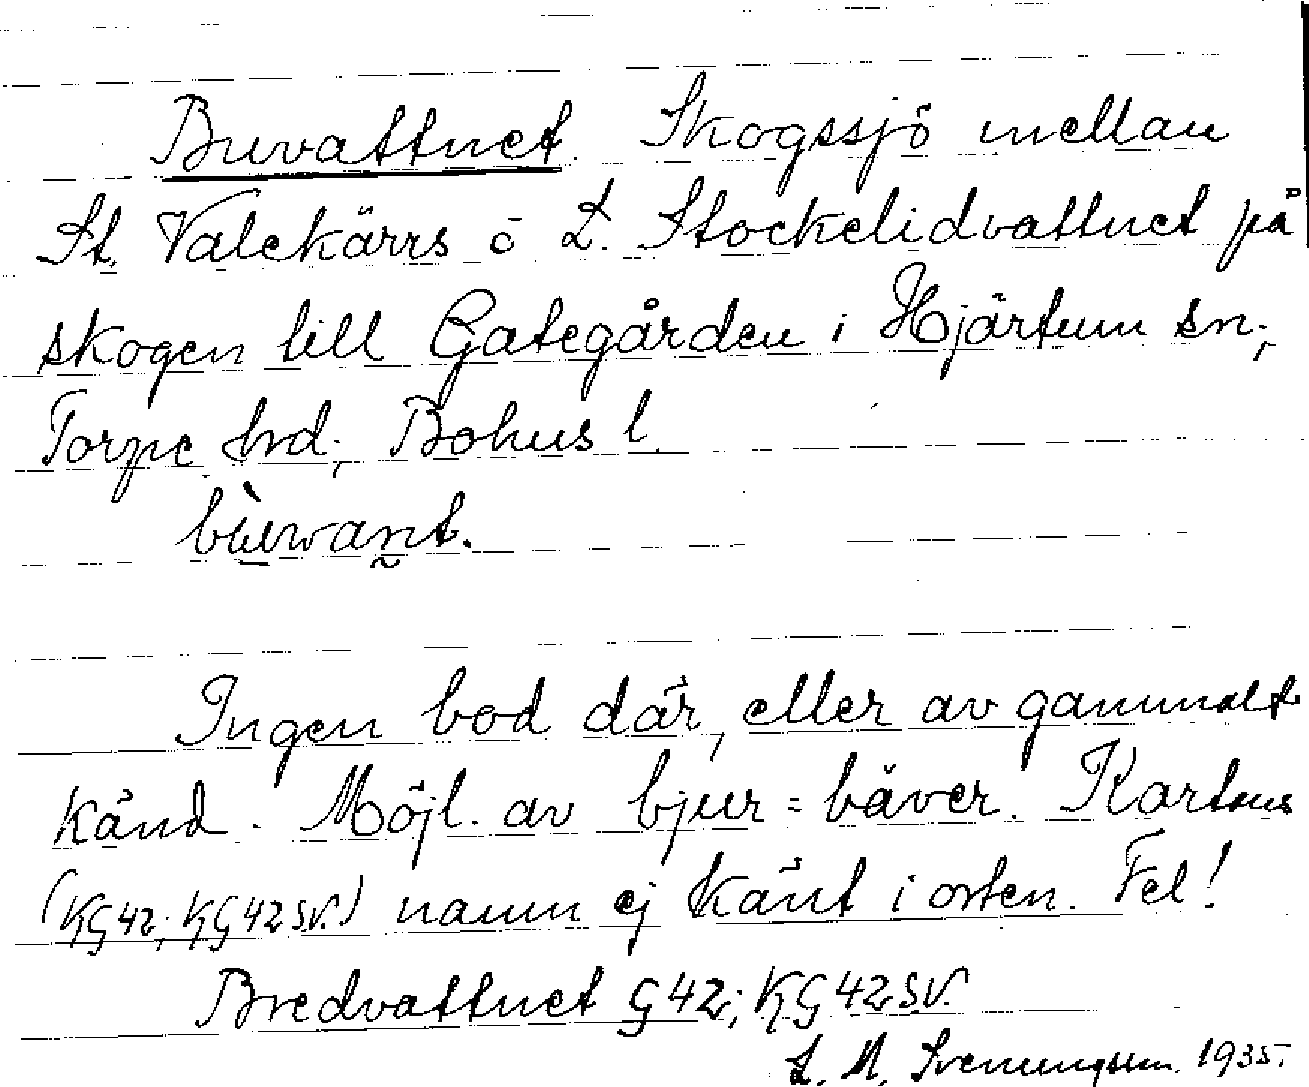 Buvattnet. Skogssjö mellan
St. Valekärrs o L. Stockelidvattnet på
skogen till Gategården i Hjärtum sn;
Torpe hrd; Bohus l.
Ingen bod där, eller av gammalt
känd. Möjl. av bjur = bäver. Kartans
(KG42; KG42SV.) namn ej känt i orten. Fel!
Bredvattnet G42; KG42SV.
L. M. Svenungsson 1935.